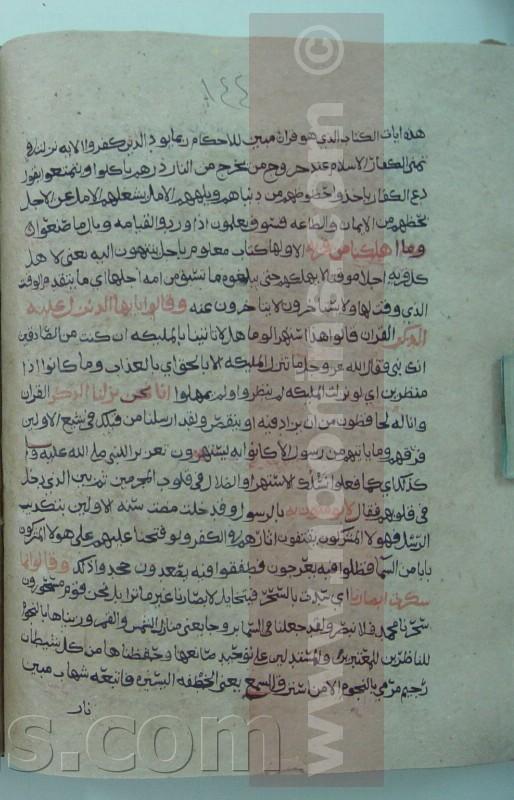 ١٤٤
هذه ايات الكتاب الذي هو قران مبين للاحكام ربما يود الذين كفروا الايه نزلت في
تمني الكفار الاسلام عند خروج من يخرج من النار ذرهم ياكلوا ويتمتعوا يقول
دع الكفار ياخذوا حظوظهم من دنياهم ويلههم الامل يشغلهم الامل عن الاخذ
بحظهم من الايمان والطاعه فسوف يعلمون اذا وردوا القيامه وبال ما صنعوا
وما اهلكنا من قريه الا ولها كتاب معلوم ياجل ينتهون اليه يعني لاهل
كل قريه اجلا موقتا لا يهلكهم حتى يبلغوه ما تسبق من امه اجلها اي ما يتقدم الوقت
الذي وقت لها ولا يستاخرون لا يتاخرون عنه وقالوا يايها الذي نزل عليه
الذكر القران قالوا هذا استهزاء لو ما هلا تاتينا بالمليكه ان كنت من الصادقين
انك نبي فقال الله عز وجل ما تنزل المليكه الا بالحق اي بالعذاب وما كانوا اذا
منظرين اي لو نزلت المليكه لم ينظروا ولم يمهلوا انا نحن نزلنا الذكر القران
وانا له لحافظون من ان يزاد فيه او ينقص ولقد ارسلنا من قبلك في شيع الاولين
فرقهم وما ياتيهم من رسول الا كانوا به يستهزون تعزية للنبي صلى الله عليه و
كذلك اي كما فعلوا نسلك الاستهزا والضلال في قلوب المجرمين ثم بين الذي دخل
في قلوبهم فقال لا يومنون به بالرسول وقد خلت مضت سنة الاولين بتكذيب
الرسل فهولا المشركون يقتفون اثارهم في الكفر ولو فتحنا عليهم على هولا المشركين
بابا من السما فظلوا فيه يعرجون فطفقوا فيه يصعدون لجحدوا ذلك وقالوا انما
سكرت ابصارنا اي سدت بالسحر فيتخايل لابصارنا غير ما نرا بل نحن قوم مسحورون
سحرنا محمد فلا نبصر ولقد جعلنا في السما بروجا يعني منازل الشمس والقمر وزيناها بالنجوم
للناظرين للمعتبرين والمستدلين على توحيد صانعها وحفظناها من كل شيطان
رجيم مرمي بالنجوم الا من استرق السمع يعني الخطفه اليسيره فاتبعه شهاب مبين
نار